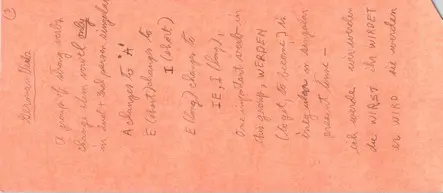 C
German Verbs
A group of strong verbs
change stem vowel only
in 2nd + 3rd person singular
A changes to "Ä"
E (short) changes to
I (short)
E (long) changes to
IE, I (long),
One important verb in
this group, WERDEN
(to get, to become) is
irregular in singular
present tense –
ich werde wir werden
du WIRST ihr WERDET
er WIRD sie werden